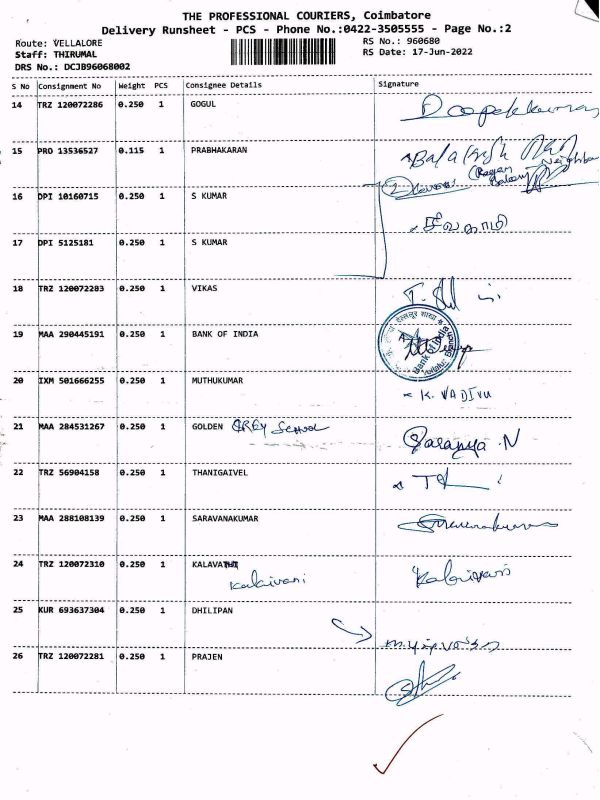 THE PROFESSIONAL COURIERS, Coimbatore
Delivery Runsheet - PCS - Phone No.:0422-3505555 - Page No.:2
Route: VELLALORE RS No.: 960680
Staff: THIRUMAL RS Date: 17-Jun-2022
DRS No.: DCJB96068002
S No Consignment No Weight PCS Consignee Details Signature
14 TRZ 120072286 0.250 1 GOGUL
15 PRO 13536527 0.115 1 PRABHAKARAN
Neighbour
16 DPI 10160715 0.250 1 S KUMAR
சிவகாமி
17 DPI 5125181 0.250 1 S KUMAR
18 TRZ 120072283 0.250 1 VIKAS
19 MAA 290445191 0.250 1 BANK OF INDIA
Bank of India
20 IXM 501666255 0.250 1 MUTHUKUMAR
K. VADIVU
21 MAA 284531267 0.250 1 GOLDEN GREY SCHOOL Saranya.N
22 TRZ 56904158 0.250 1 THANIGAIVEL
23 MAA 288108139 0.250 1 SARAVANAKUMAR
24 TRZ 120072310 0.250 1 KALAVATHI
Kalaivani Kalaivani
25 KUR 693637304 0.250 1 DHILIPAN
26 TRZ 120072281 0.250 1 PRAJEN